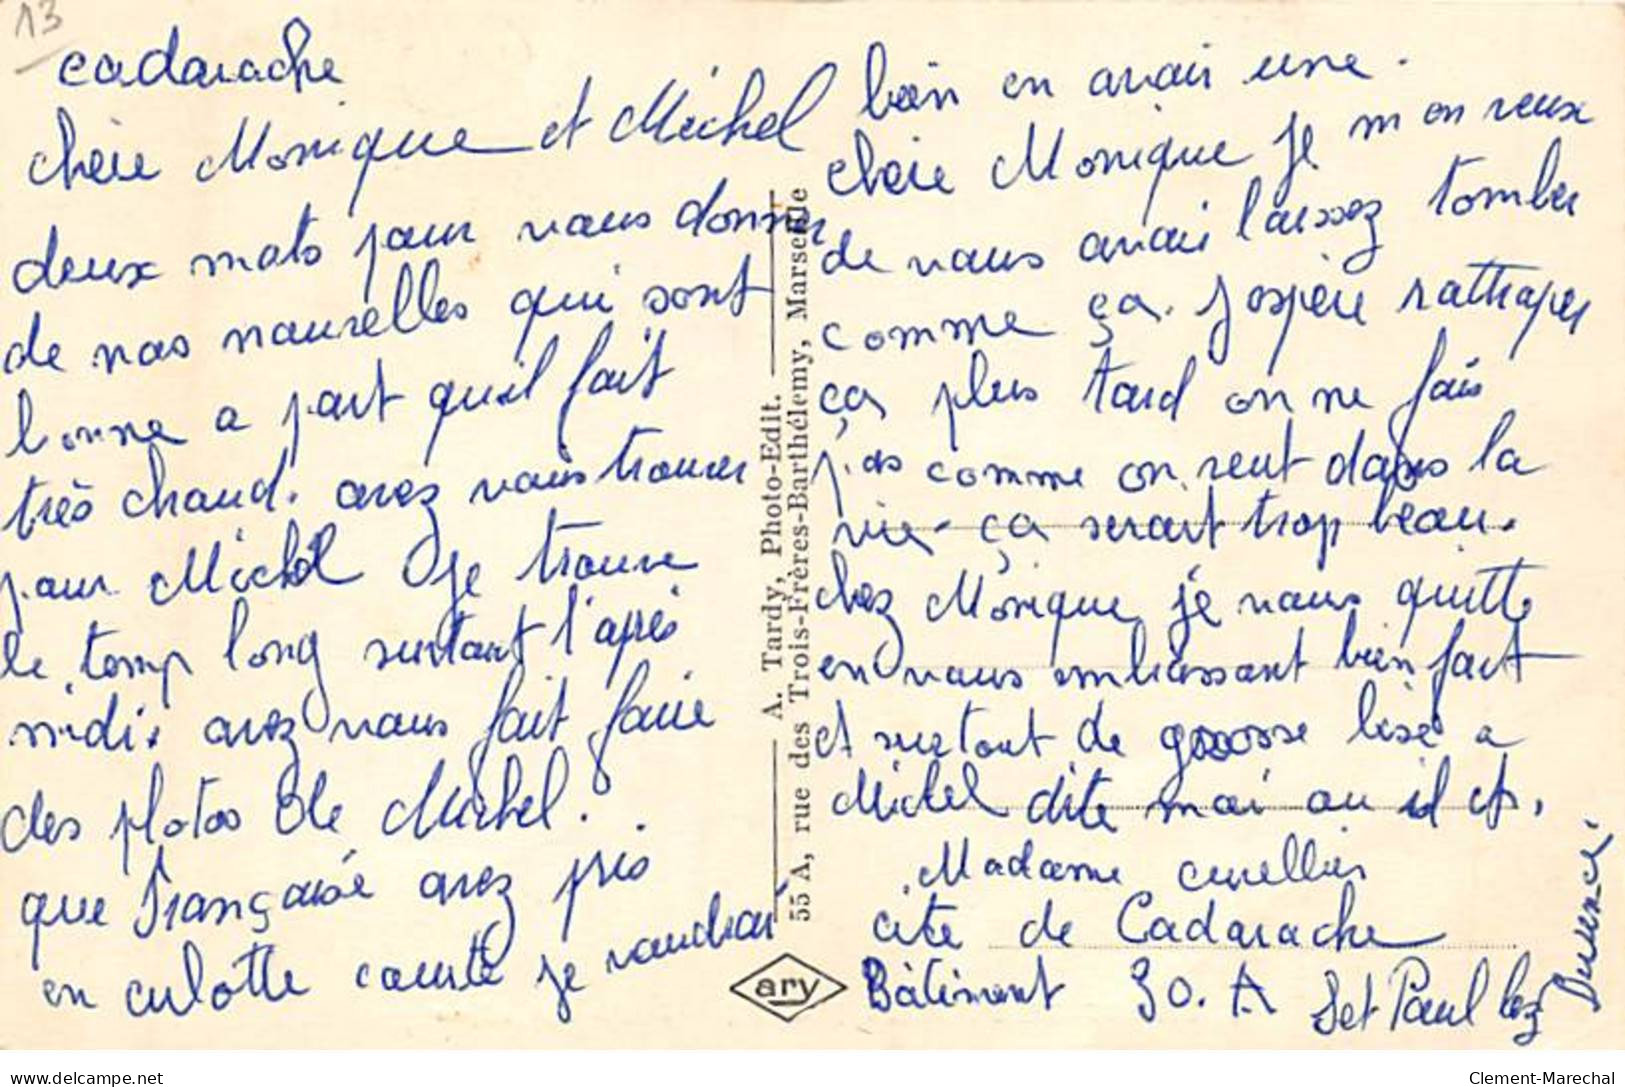 13
cadarache
chère Monique et Michel
deux mots pour vous donner
de nos nouvelles qui sont
bonne a part quil fait
très chaud. avez vous trouver
pour Michel je trouve
le temp long surtout l'après
midi. avez vous fait faire
des photos de Michel.
que Françoise avez pris
en culotte courte je voudrai
bien en avair une.
chère Monique je m on veux
de vous avair laissez tomber
comme ça. J'espère rattraper
ça plus tard on ne fais
pas comme on veut dans la
vie. ça serait trop beau.
chez Monique je vous quitte
en vous embrassant bien fort
et surtout de grosse bise a
Michel dite moi ou il et.
Madame cuvellier
cite de Cadarache
Bâtiment 30. A Set Paul lez
Durence
A. Tardy, Photo-Edit.
55 A, rue des Trois-Frères-Barthélemy, Marseille
ary
delcampe.net
Clement-Marechal